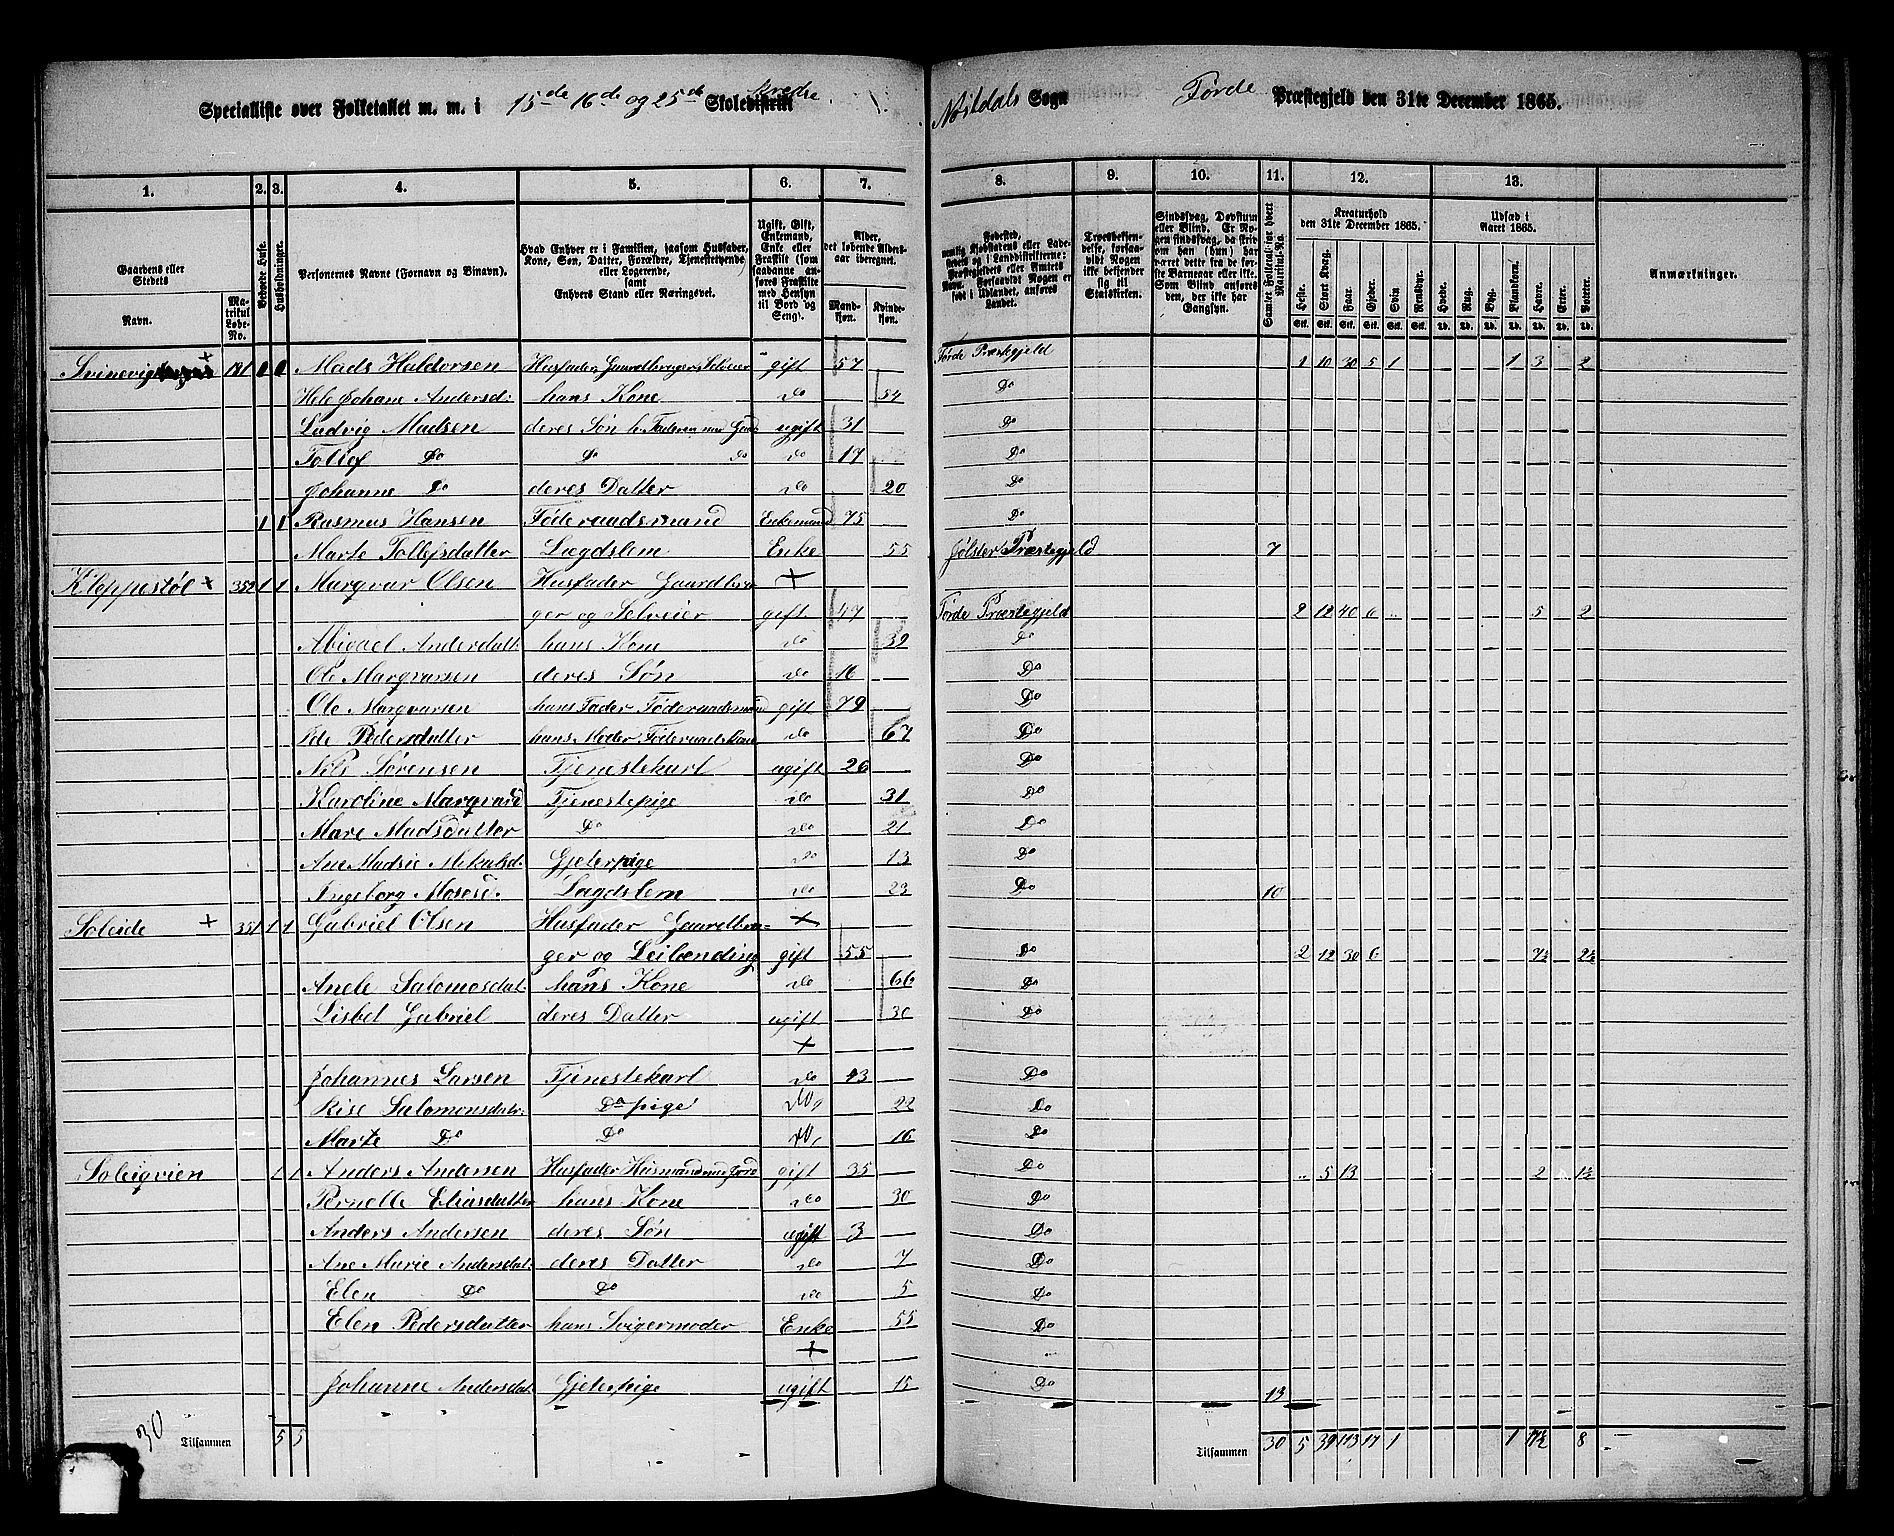 Specialliste over Folketallet m. m. i 15de 16de og 25de Skoledistrikt Kredse
Nildals Sogn Førde Præstegjeld den 31te December 1865.
1. 2. 3. 4. 5. 6. 7. 8. 9. 10. 11. 12. 13.
Gaardens eller Stedets
Navn. Matrikul Løbe-No.
Beboede Huse.
Husholdninger.
Personernes Navne (Fornavn og Binavn).
Hvad Enhver er i Familien, saasom Husfader, Kone, Søn, Datter, Forældre, Tjenestetyende eller Logerende, samt Enhvers Stand eller Næringsvei.
Ugift, Gift, Enkemand, Enke eller Fraskilt (som saadanne anføres Fraskilte med Hensyn til Bord og Seng).
Alder, det løbende Aldersaar iberegnet.
Mandkjøn. Kvindekjøn.
Fødested,
Troesbekjendelse, forsaavidt Nogen ikke bekjender sig til Statskirken.
Sindssvag, Døvstum eller Blind.
Kreaturhold den 31te December 1865.
Heste. Stort Kvæg. Faar. Gjeder. Svin Rensdyr.
Udsæd i Aaret 1865.
Hvede. Rug. Byg. Blandkorn. Havre. Erter. Poteter.
Anmærkninger.
Svinevig + 1 1 Mads Haldorsen Husfader Gaardbruger Selveier gift 57 Førde Præstegjeld 1 10 30 5 1 1 3 2
Johane Andersd: hans Kone do 54 Do
Ludvig Madsen deres Søn ugift 31 Do
Tollef Do Do Do do 17 Do
Johanne Do deres Datter do 20 Do
1 1 Rasmus Hansen Føderaadsmand Enkemand 75 Do
Marte Tollefsdatter Lægdslem Enke 55 Jølster Præstegjeld 7
Kleppestøl + 352 1 1 Margvar Olsen Husfader Gaardbru +
ger og Selveier gift 47 Førde Præstegjeld 2 12 40 6 .. 5 2
Abigael Andersdatt. hans Kone do 39 Do
Ole Margvarsen deres Søn do 16 Do
Ole Margvarsen hans Fader Føderaadsmand gift 79 Do
Pedersdatter hans Moder Føderaads Kone do 67 Do
Nils Sørensen Tjenestekarl ugift 26 Do
Karoline Margvarsd Tjenestepige do 31 Do
Mare Madsdatter Do do 21 Do
Ane Madsie Mikalsd. Gjeterpige do 13 Do
Ingeborg Mosesd. Lægdslem do 23 Do 10
Soleide + 351 1 1 Gabriel Olsen Husfader Gaardbru= +
ger og Leilænding gift 55 Do 2 12 30 6 7½ 2½
Anele Salomosdat. hans Kone do 66 Do
Lisbet Gabriel deres Datter ugift 30 Do
+
Johannes Larsen Tjenestekarl do 43 Do
Salomonsdatr. Do pige do, 22 Do
Marte Do Do do, 16 Do
Soleigvien 1 1 Anders Andersen Husfader Husmand med Jord gift 35 Do .. 5 13 2 1½
Pernelle Eliasdatter hans Kone do 30 Do
Anders Andersen deres Søn ugift 3 Do
Ane Marie Andersdat. deres Datter do 7 Do
Elen Do Do do 5 Do
Elen Pedersdatter hans Svigermoder Enke 55 Do
+
Johanne Andersdat. Gjeterpige ugift 15 Do 13
30 Tilsammen 5 5 Tilsammen 30 5 39 113 17 1 1 17½ 8